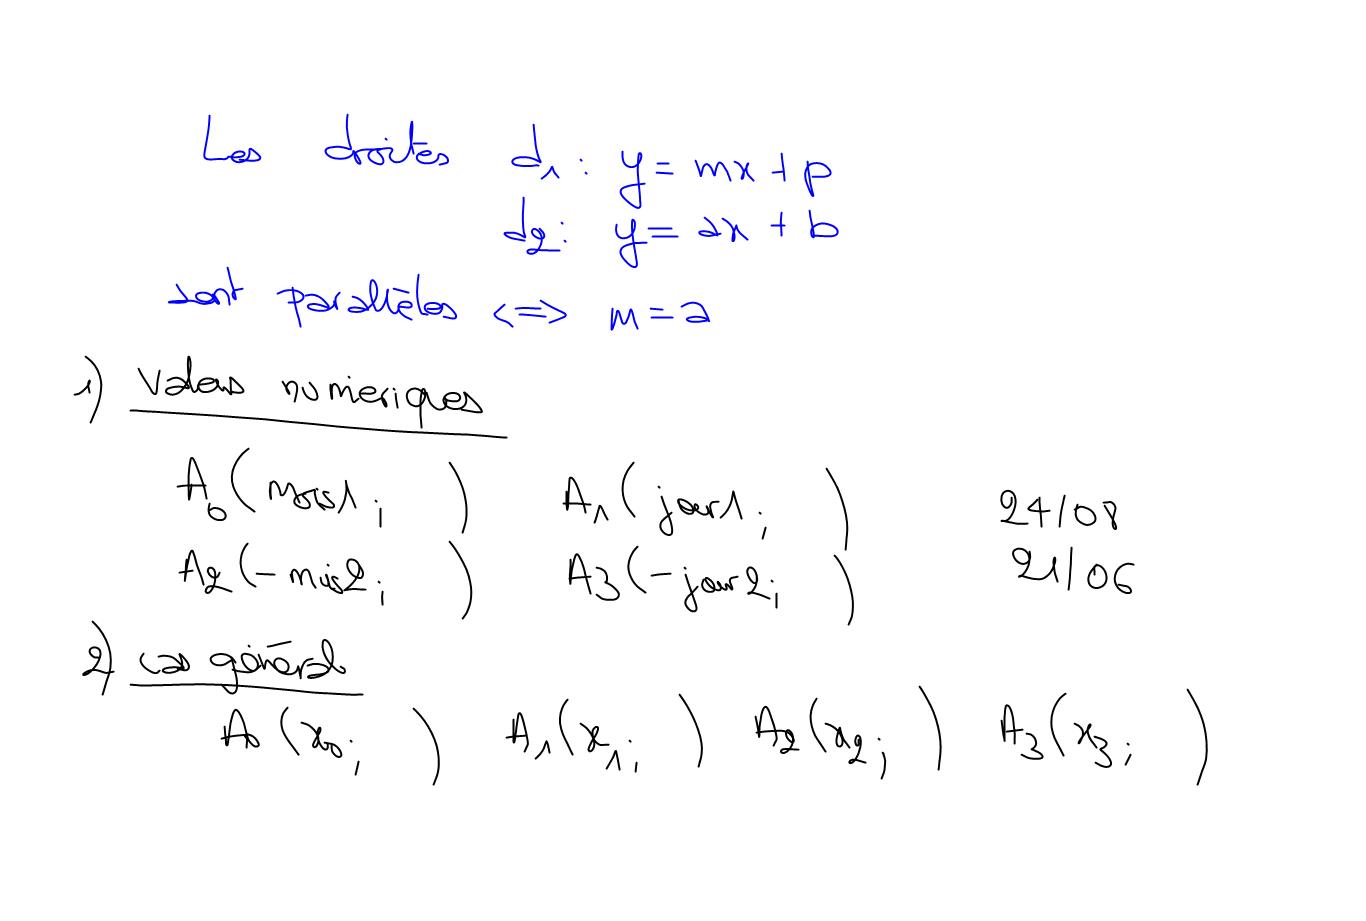 Les droites d₁ : y = mx + p
d₂ : y = ax + b
sont parallèles <=> m = a
1) Valeurs numeriques
A₀ (mois1 ; ) A₁ (jour1 ; ) 24/08
A₂ (-mois2 ; ) A₃ (-jour2 ; ) 21/06
2) cas général
A₀ (x₀ ; ) A₁ (x₁ ; ) A₂ (x₂ ; ) A₃ (x₃ ; )